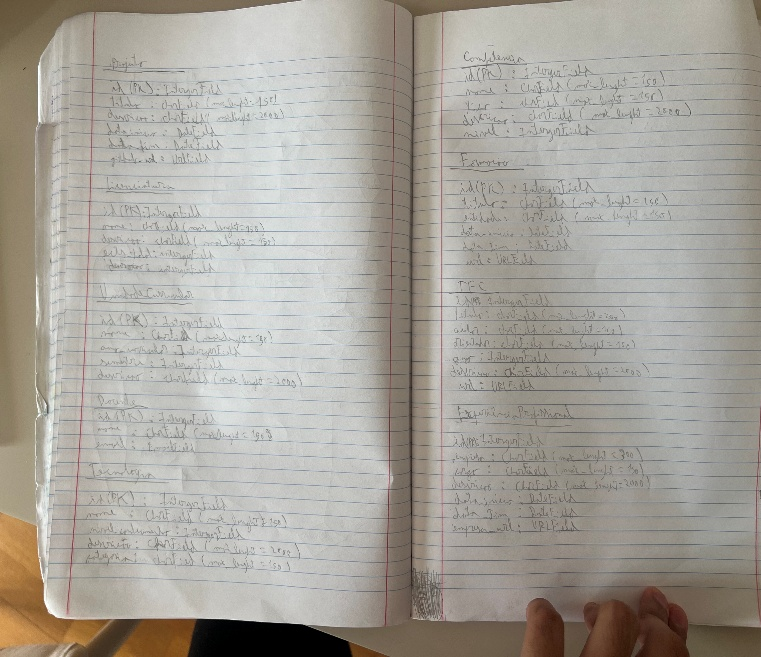 Projeto
id (PK) : IntegerField
titulo : CharField (max_lenght=150)
descricao : CharField (max_lenght=2000)
data_inicio : DateField
data_fim : DateField
github_url : UrlField
Licenciatura
id (PK) : IntegerField
nome : CharField (max_lenght=
descricao : CharField (max_lenght=
IntegerField
IntegerField
Unidade Curricular
id (PK) : IntegerField
nome : CharField (max_lenght=
IntegerField
semestre : IntegerField
descricao : CharField (max_lenght=2000)
Docente
id (PK) : IntegerField
nome : CharField (max_lenght=
email : EmailField
Tecnologia
id (PK) : IntegerField
nome : CharField (max_lenght=
IntegerField
descricao : CharField (max_lenght=2000)
categoria : CharField (max_lenght=150)
Competencia
id (PK) : IntegerField
nome : CharField (max_lenght=150)
tipo : CharField (max_lenght=150)
descricao : CharField (max_lenght=2000)
nivel : IntegerField
Formacao
id (PK) : IntegerField
titulo : CharField (max_lenght=150)
entidade : CharField (max_lenght=150)
data_inicio : DateField
data_fim : DateField
url : URLField
TFC
id (PK) : IntegerField
titulo : CharField (max_lenght=
autor : CharField (max_lenght=
CharField (max_lenght=
ano : IntegerField
descricao : CharField (max_lenght=2000)
url : URLField
Experiencia Profissional
id (PK) : IntegerField
empresa : CharField (max_lenght=
CharField (max_lenght=
descricao : CharField (max_lenght=2000)
data_inicio : DateField
data_fim : DateField
empresa_url : URLField